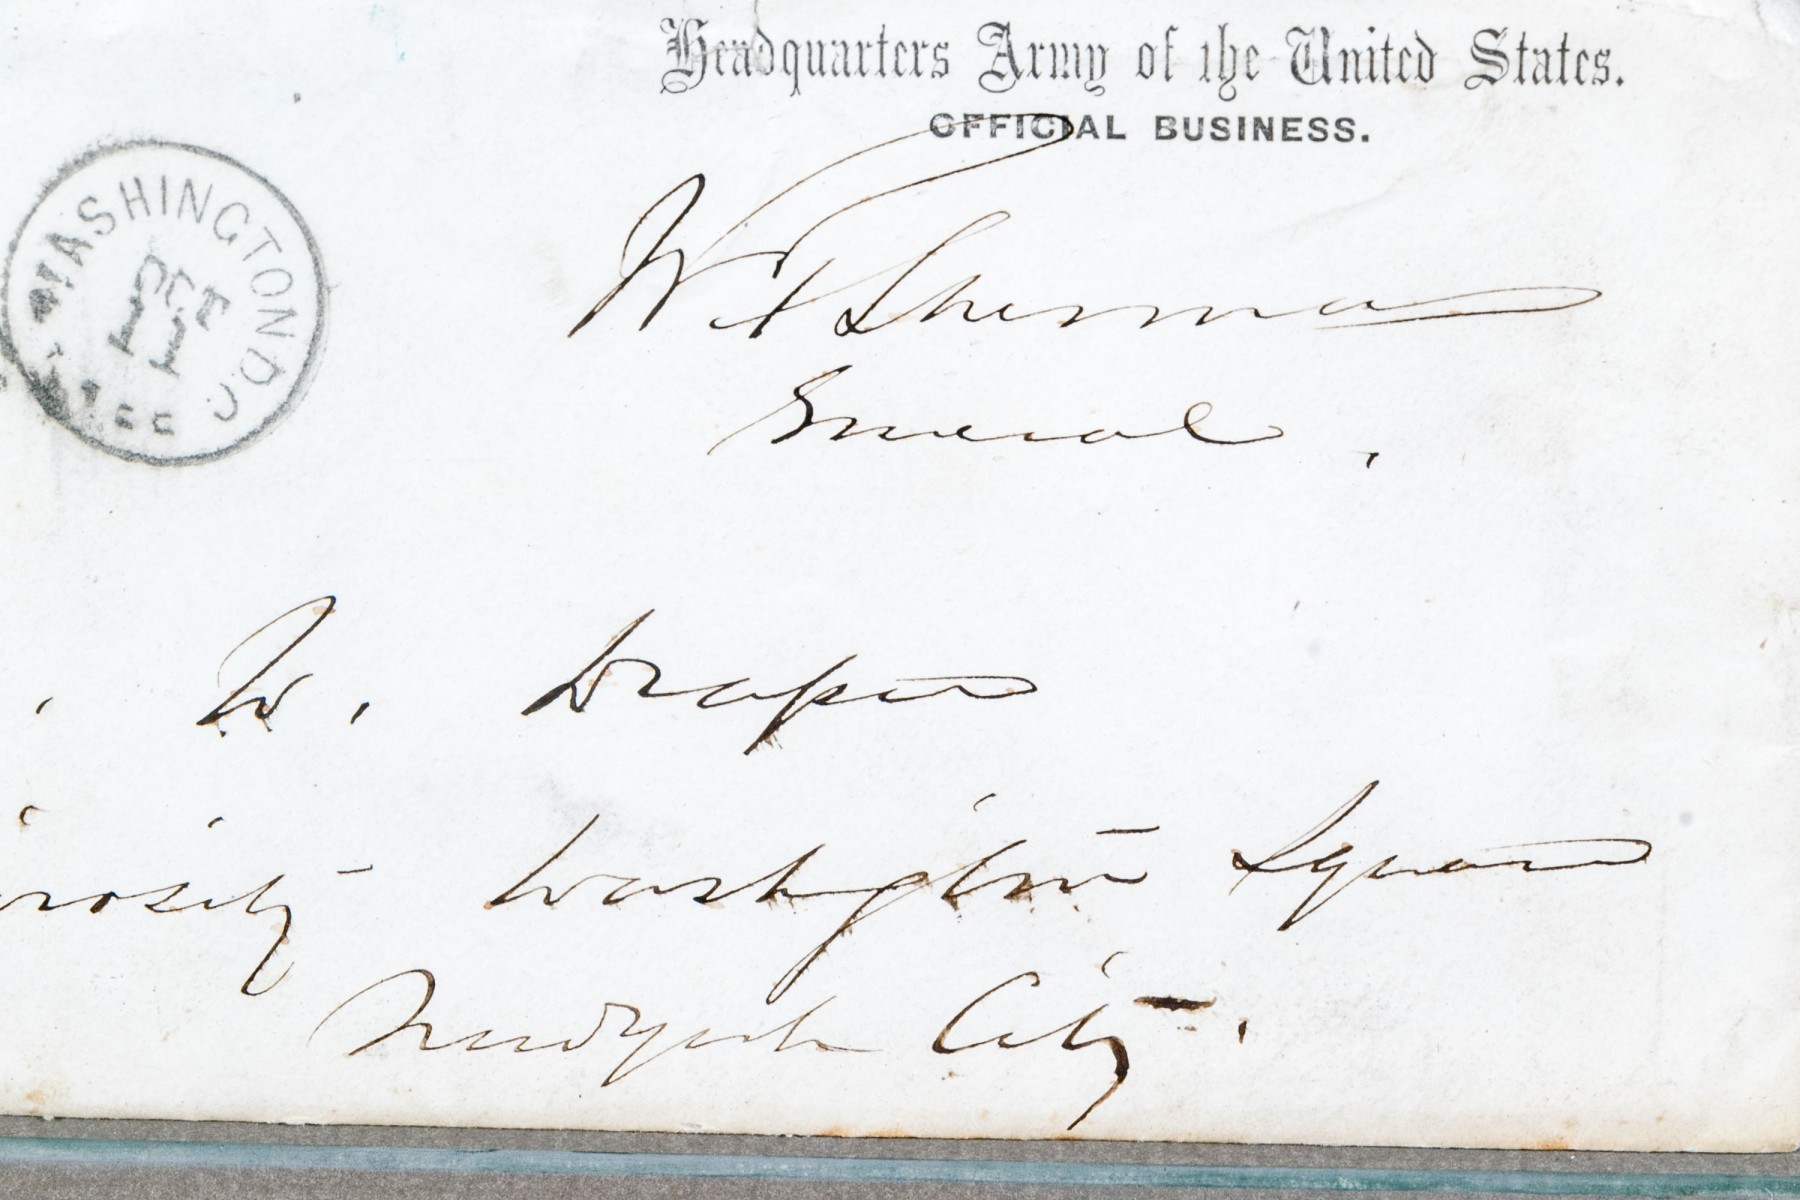 Headquarters Army of the United States.
OFFICIAL BUSINESS.
WASHINGTON D.C.
OCT
11
W T Sherman
General.
. W. Draper
Washington Square
New York City.